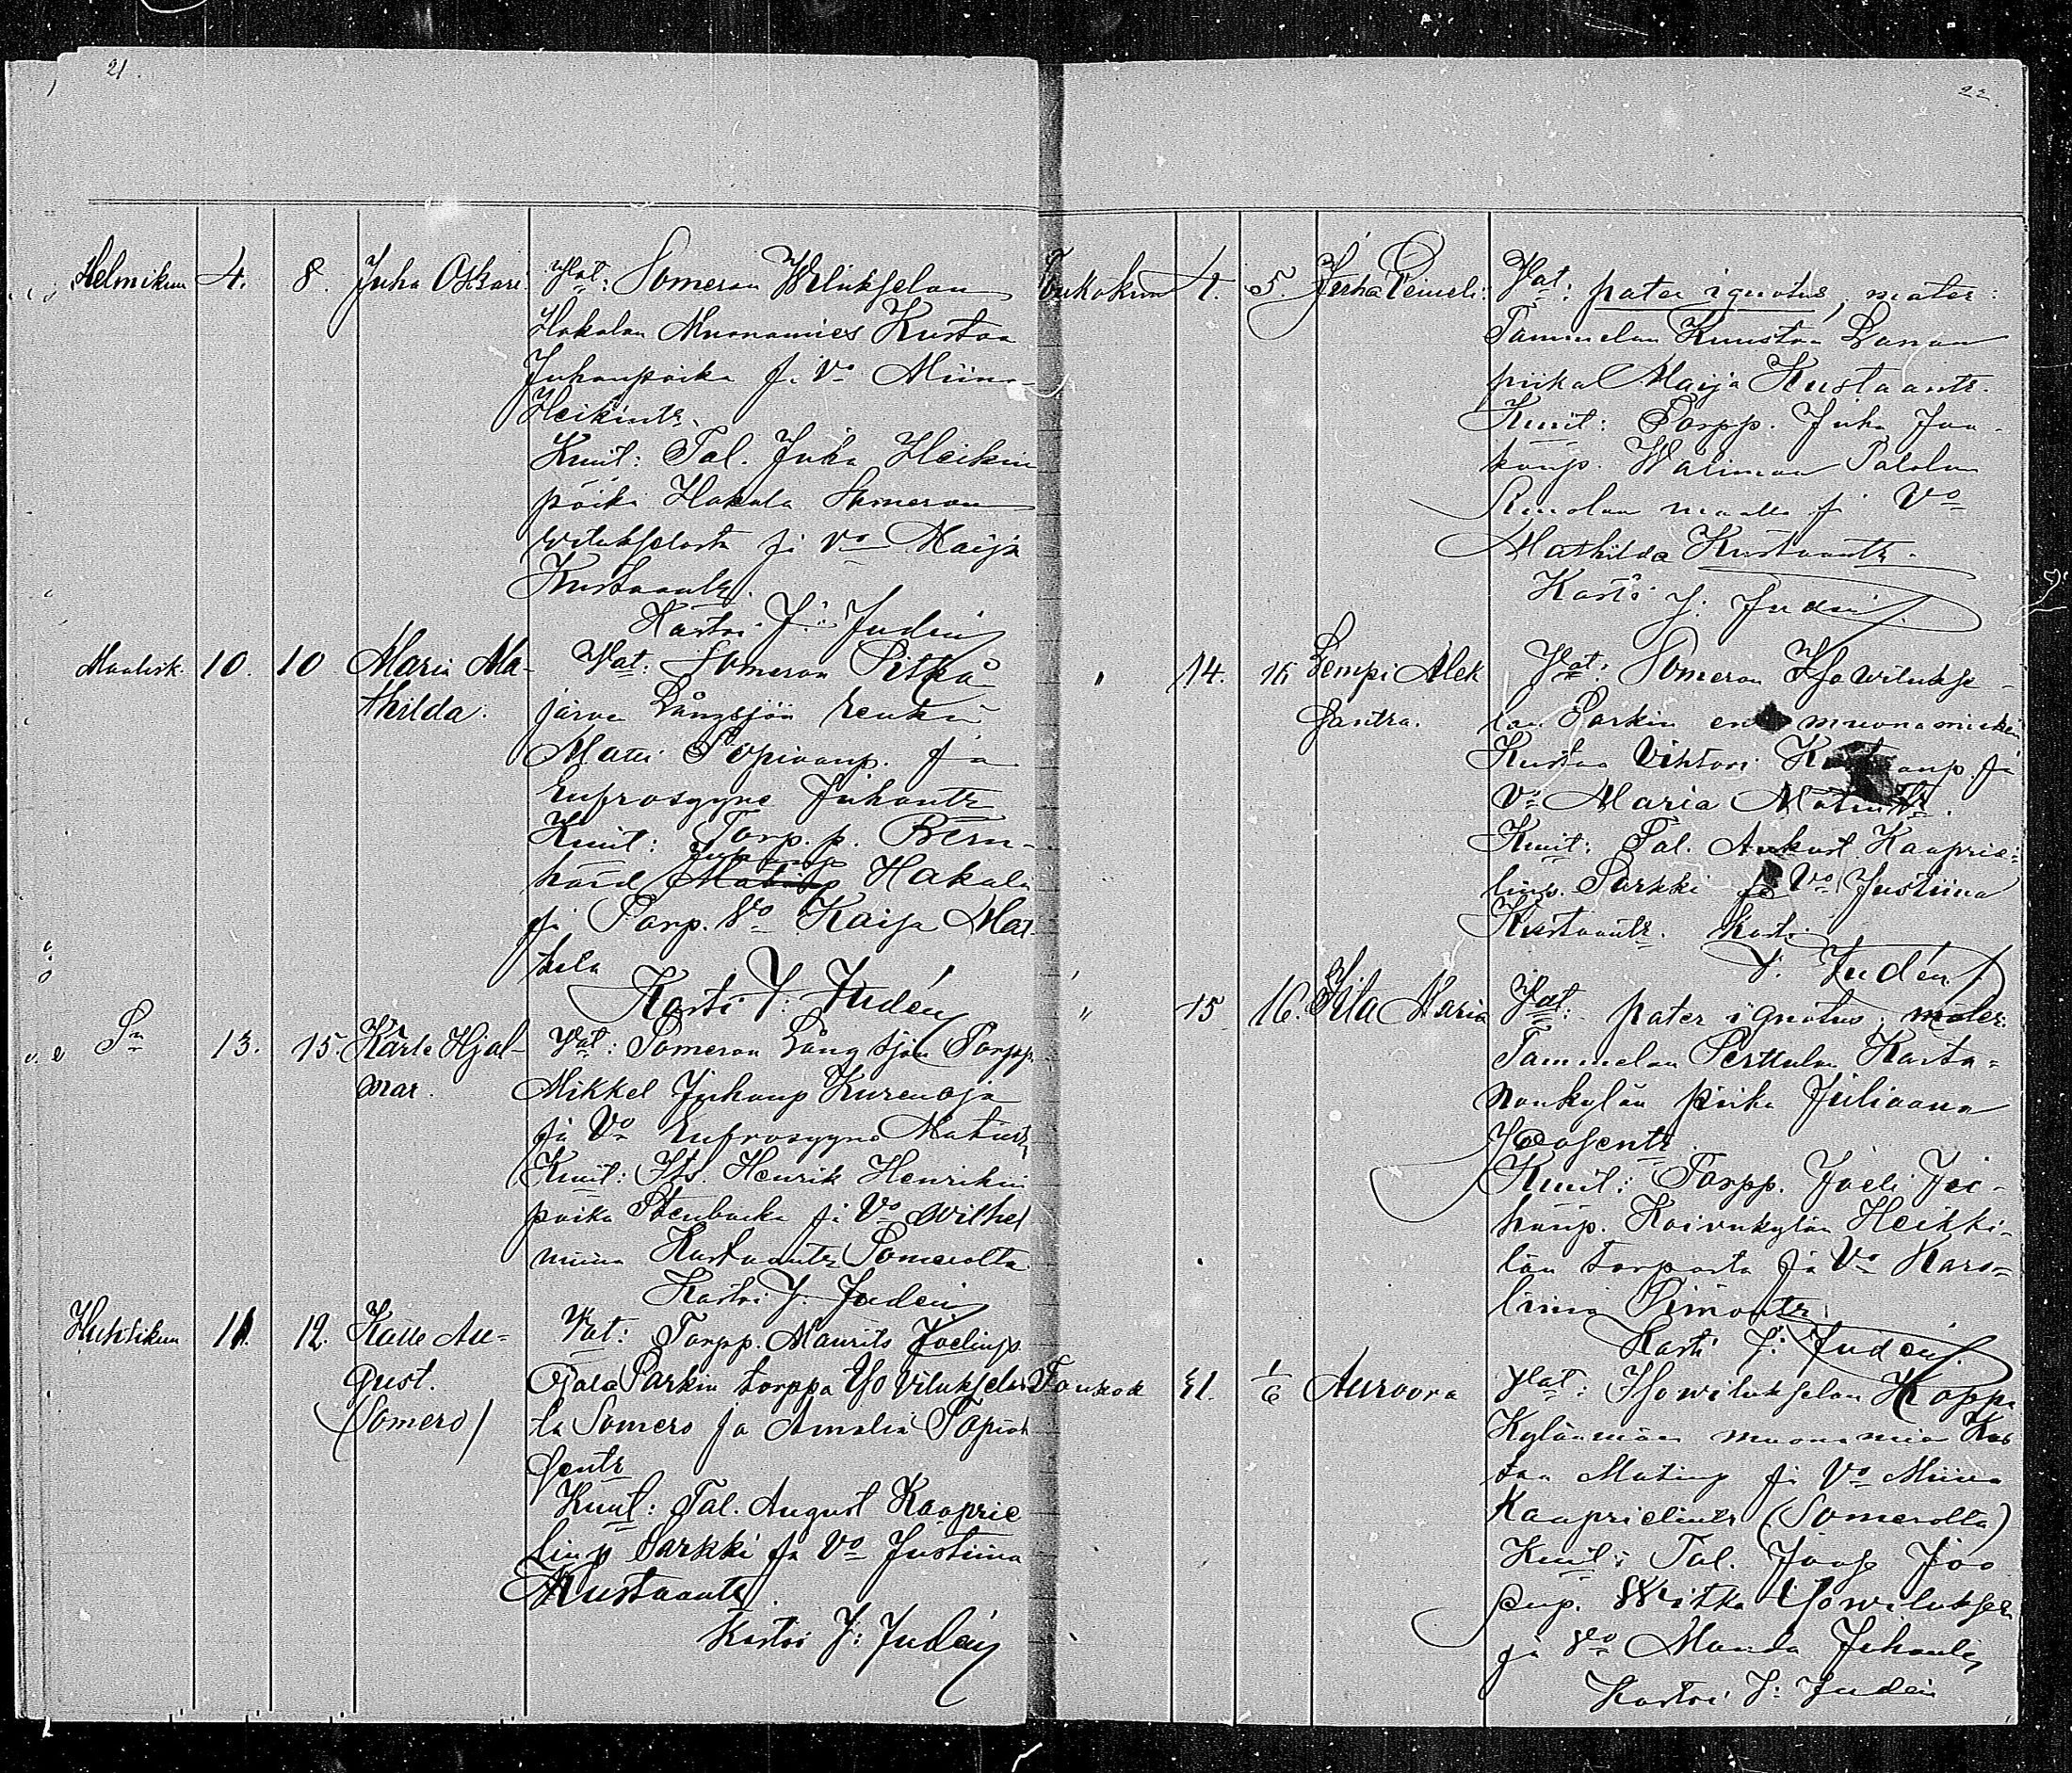 21.
Helmikuu 4. 8. Juha Oskari. Vat: Someron Wilukselan
Hakalan Muonamies Kustaa
Juhanpoika ja Vo Miina
Heikintr.
Kuul: Tal. Juha Heikin
poika Hakala Someron
Wilukselasta ja Vo Maija
Kustaantr.
Kastoi J: Judén
Maalisk. 10. 10 Maria Ma-
thilda. Vat: Someron Pitkä
järven Långsjön renki
Matti Topiaanp. ja
Eufrosyyne Juhantr
Kuul: Torp. p. Bern-
hard Hakala
ja Torp. Vo Kaisa Mat
tila
Kasti J: Judén
Sn 13. 15. Karle Hjal-
mar. Vat: Someron Långsjön Torpp.
Mikkel Juhanp Kurenoja
ja Vo Eufrosyyne Matintr
Kuul: Its. Henrik Henrikin
poika Stenbacka ja Vo Wilhel
miina Kustaantr Somerolta
Kastoi J. Judén
Huhtikuu 11. 12. Kalle Au-
gust.
(Somero) Vat: Torpp. Maurits Joelinp.
Ojala Parkin torppa Iso Viluksela
ta Somero ja Amalia Topiak
sentr
Kuul: Tal. August Kaaprie
linp Sarkki ja Vo Justiina
Kustaantr.
Kastoi J: Judén
22.
Toukokuu 4. 5. Juha Eineli: Vat: pater ignotus, mater:
Tammelan Kuuston Lanan
piika Maija Kustaantr.
Kuul: Torpp. Juha Jaa
konp. Wälimaa Talolan
maalta ja Vo
Mathilda Kustaantr.
Kasti J: Judén
" 14. 15 Lempi Alek
santra. Vat: Someron Isowilukse
lan Parkin muonamiehen
Kustaa Vihtori ja
Vo Maria
Kuul: Tal. Aukust Kaaprie-
linp. Sarkki ja Vo Justiina
Kustaantr. Kasti
J. Judén
" 15 16. Iita Maria Vat: pater ignotus; mater:
Tammelan Perttulan Karta-
nonkylän piika Juliaana
Joosentr
Kuul: Torpp. Joeli
Koivukylän Heikki-
län torpasta ja Vo Karo-
liina Simontr.
Kasti J: Judén
Toukok 31. 1/6 Auroora Vat: Isowilukselan
Kylänmään muonamies Kus
taa Matinp ja Vo Miina
Kaaprielintr (Somerolta)
Kuul: Tal. Joose Joo
senp. Witka Isowiluksela
ja Vo Manda Juhantr
Kastoi J: Judén